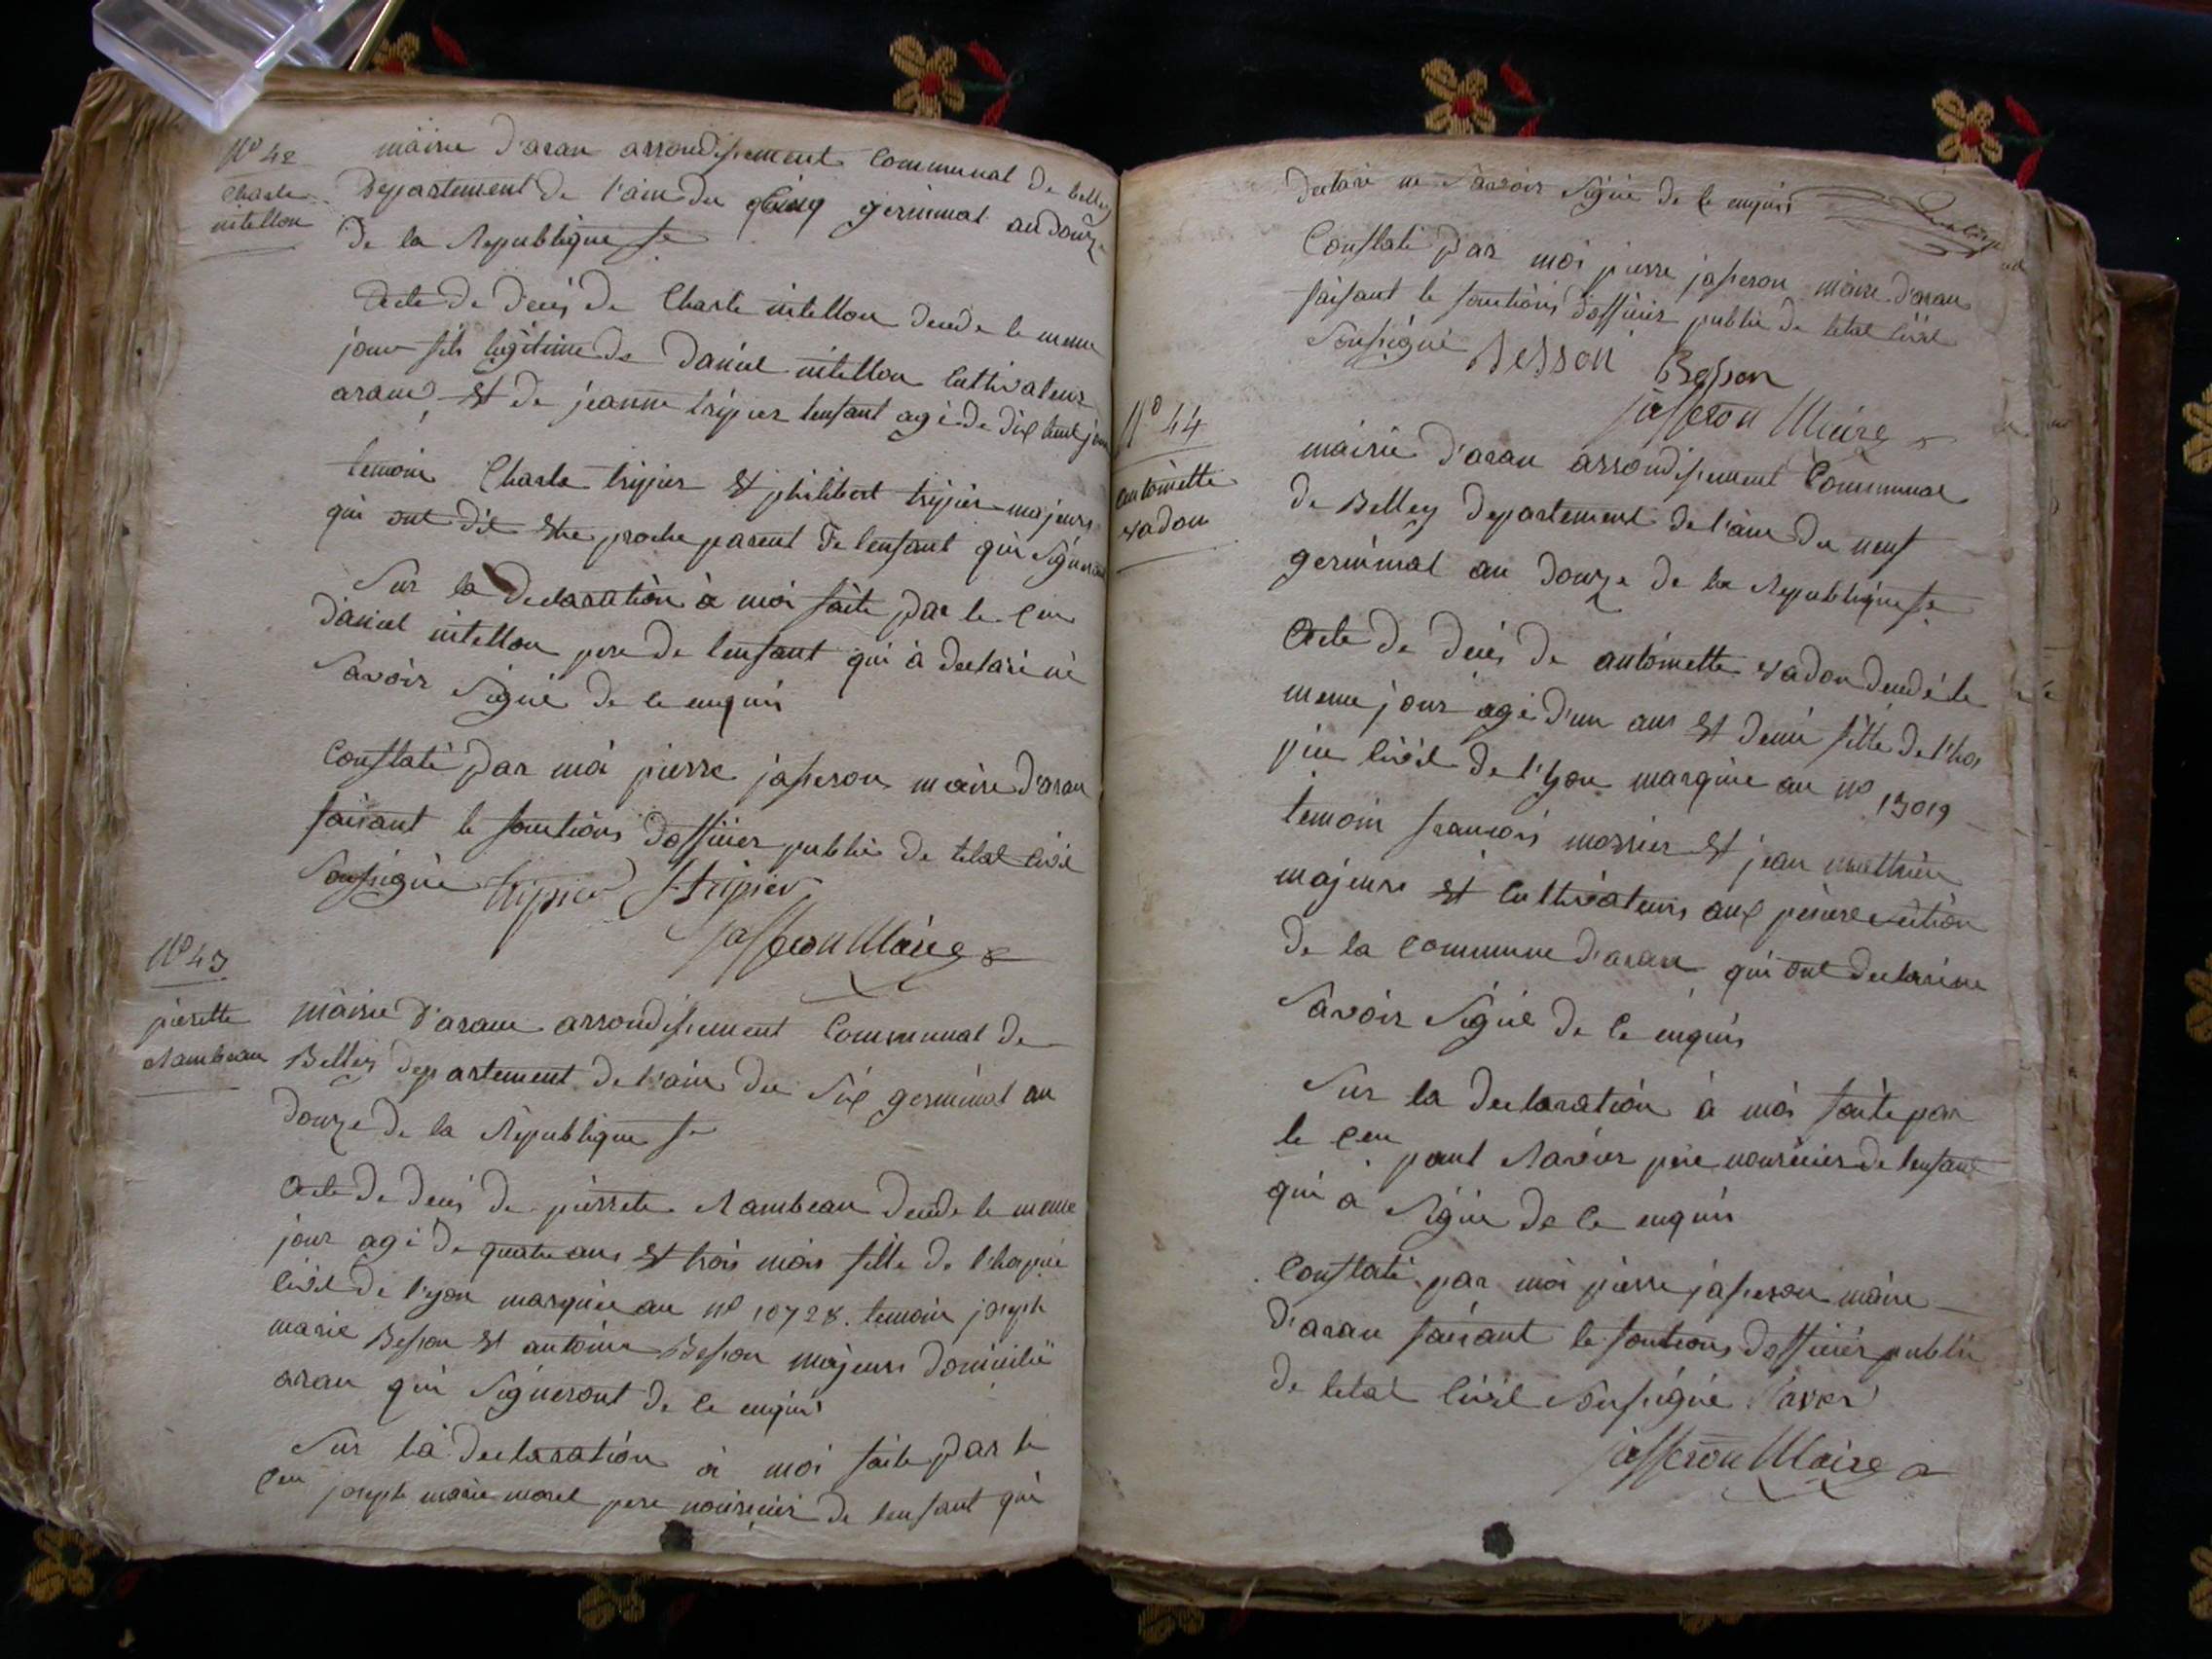 N° 42
Charle
intellon
mairie d'aran arrondissement Communal de belley
Departement de l'ain du Cinq germinal an douze
de la Republique fse
Acte de deces de Charle intellon decede le meme
jour fils legitime de daniel intellon Cultivateur
aran et de jeanne tripier lenfant agé de dix huit jours
temoin Charle tripier et philibert tripier majeurs
qui ont dit etre proche parent de lenfant qui signeront
Sur la declaration à moi faite par le Cen
daniel intellon pere de lenfant qui à declaré ne
savoir signé de ce enquis
Constaté par moi pierre jasseron maire d'aran
faisant le fonctions dofficier public de letat civil
soussigné tripier tripier
jasseron Maire
N° 43
pierette
Rambeau
mairie d'aran arrondissement Communal de
Belley departement de l'ain du Six germinal an
douze de la Republique fse
Acte de deces de pierrete Rambeau decede le meme
jour agé de quatre ans et trois mois fille de l'hopice
civil de l'yon marquée au N° 10728. temoin joseph
marie Besson et antoine Besson majeurs domicilié
aran qui signeront de ce enquis
Sur la declaration à moi faite par le
Cen joseph marie morel pere nouricier de lenfant qui
declaré ne savoir signé de ce enquis
Constaté par moi pierre jasseron maire d'aran
faisant le fonctions dofficier public de letat civil
soussigné Besson Besson
jasseron Maire
N° 44
antoinette
vadon
mairie d'aran arrondissement Communal
de Belley departement de l'ain du neuf
germinal an douze de la Republique fse
Acte de deces de antoinette vadon decedé le
meme jour agé d'un ans et demi fille de l'ho
pice civil de l'yon marquée au N° 13019
temoin francois mornier et jean mathieu
majeurs et Cultivateurs
de la Commune d'aran qui ont declaré ne
savoir signé de ce enquis
Sur la declaration à moi faite par
le Cen paul Ravier pere nouricier de lenfant
qui a signé de ce enquis
Constaté par moi pierre jasseron maire
d'aran faisant le fonctions dofficier public
de letat civil soussigné ravier
jasseron Maire